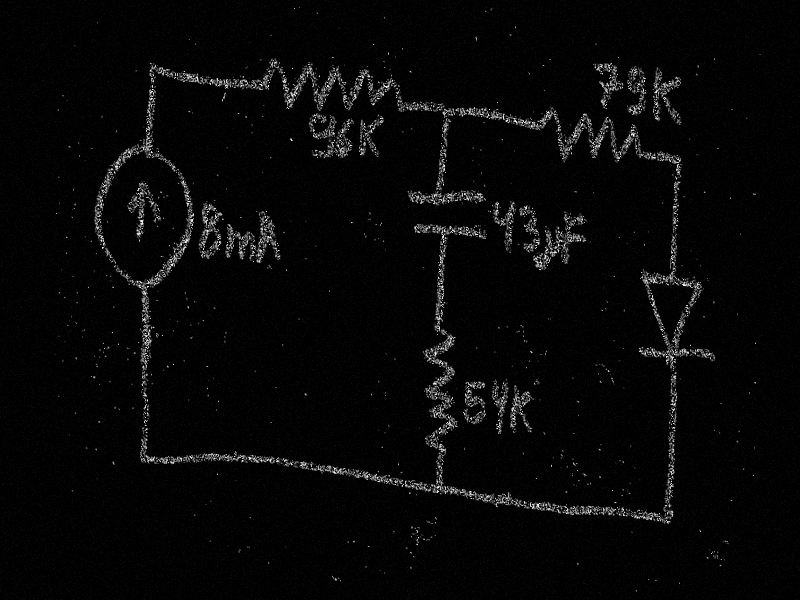 96K
79K
8mA
43µF
54K